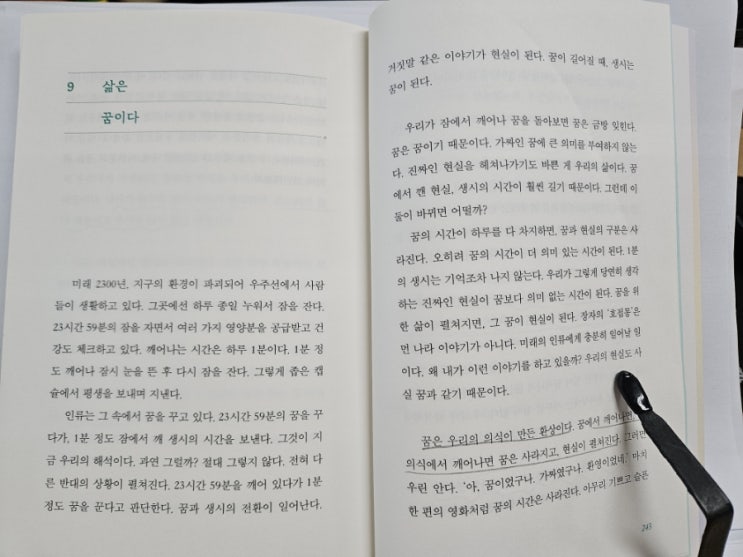 9 삶은
꿈이다
미래 2300년, 지구의 환경이 파괴되어 우주선에서 사람
들이 생활하고 있다. 그곳에선 하루 종일 누워서 잠을 잔다.
23시간 59분의 잠을 자면서 여러 가지 영양분을 공급받고 건
강도 체크하고 있다. 깨어나는 시간은 하루 1분이다. 1분 정
도 깨어나 잠시 눈을 뜬 후 다시 잠을 잔다. 그렇게 좁은 캡
슐에서 평생을 보내며 지낸다.
인류는 그 속에서 꿈을 꾸고 있다. 23시간 59분의 꿈을 꾸
다가, 1분 정도 잠에서 깨 생시의 시간을 보낸다. 그것이 지
금 우리의 해석이다. 과연 그럴까? 절대 그렇지 않다. 전혀 다
른 반대의 상황이 펼쳐진다. 23시간 59분을 깨어 있다가 1분
정도 꿈을 꾼다고 판단한다. 꿈과 생시의 전환이 일어난다.
거짓말 같은 이야기가 현실이 된다. 꿈이 길어질 때, 생시는
꿈이 된다.
우리가 잠에서 깨어나 꿈을 돌아보면 꿈은 금방 잊힌다.
꿈은 꿈이기 때문이다. 가짜인 꿈에 큰 의미를 부여하지 않는
다. 진짜인 현실을 헤쳐나가기도 바쁜 게 우리의 삶이다. 꿈
에서 깬 현실, 생시의 시간이 훨씬 길기 때문이다. 그런데 이
둘이 바뀌면 어떨까?
꿈의 시간이 하루를 다 차지하면, 꿈과 현실의 구분은 사
라진다. 오히려 꿈의 시간이 더 의미 있는 시간이 된다. 1분
의 생시는 기억조차 나지 않는다. 우리가 그렇게 당연히 생각
하는 진짜인 현실이 꿈보다 의미 없는 시간이 된다. 꿈을 위
한 삶이 펼쳐지면, 그 꿈이 현실이 된다. 장자의 '호접몽'은
먼 나라 이야기가 아니다. 미래의 인류에게 충분히 일어날 일
이다. 왜 내가 이런 이야기를 하고 있을까? 우리의 현실도 사
실 꿈과 같기 때문이다.
꿈은 우리의 의식이 만든 환상이다. 꿈에서 깨어나면,
의식에서 깨어나면 꿈은 사라지고, 현실이 펼쳐진다. 그러면
우린 안다. '아, 꿈이었구나. 가짜였구나. 환영이었네.' 마치
한 편의 영화처럼 꿈의 시간은 사라진다. 아무리 기쁘고 슬픈
243